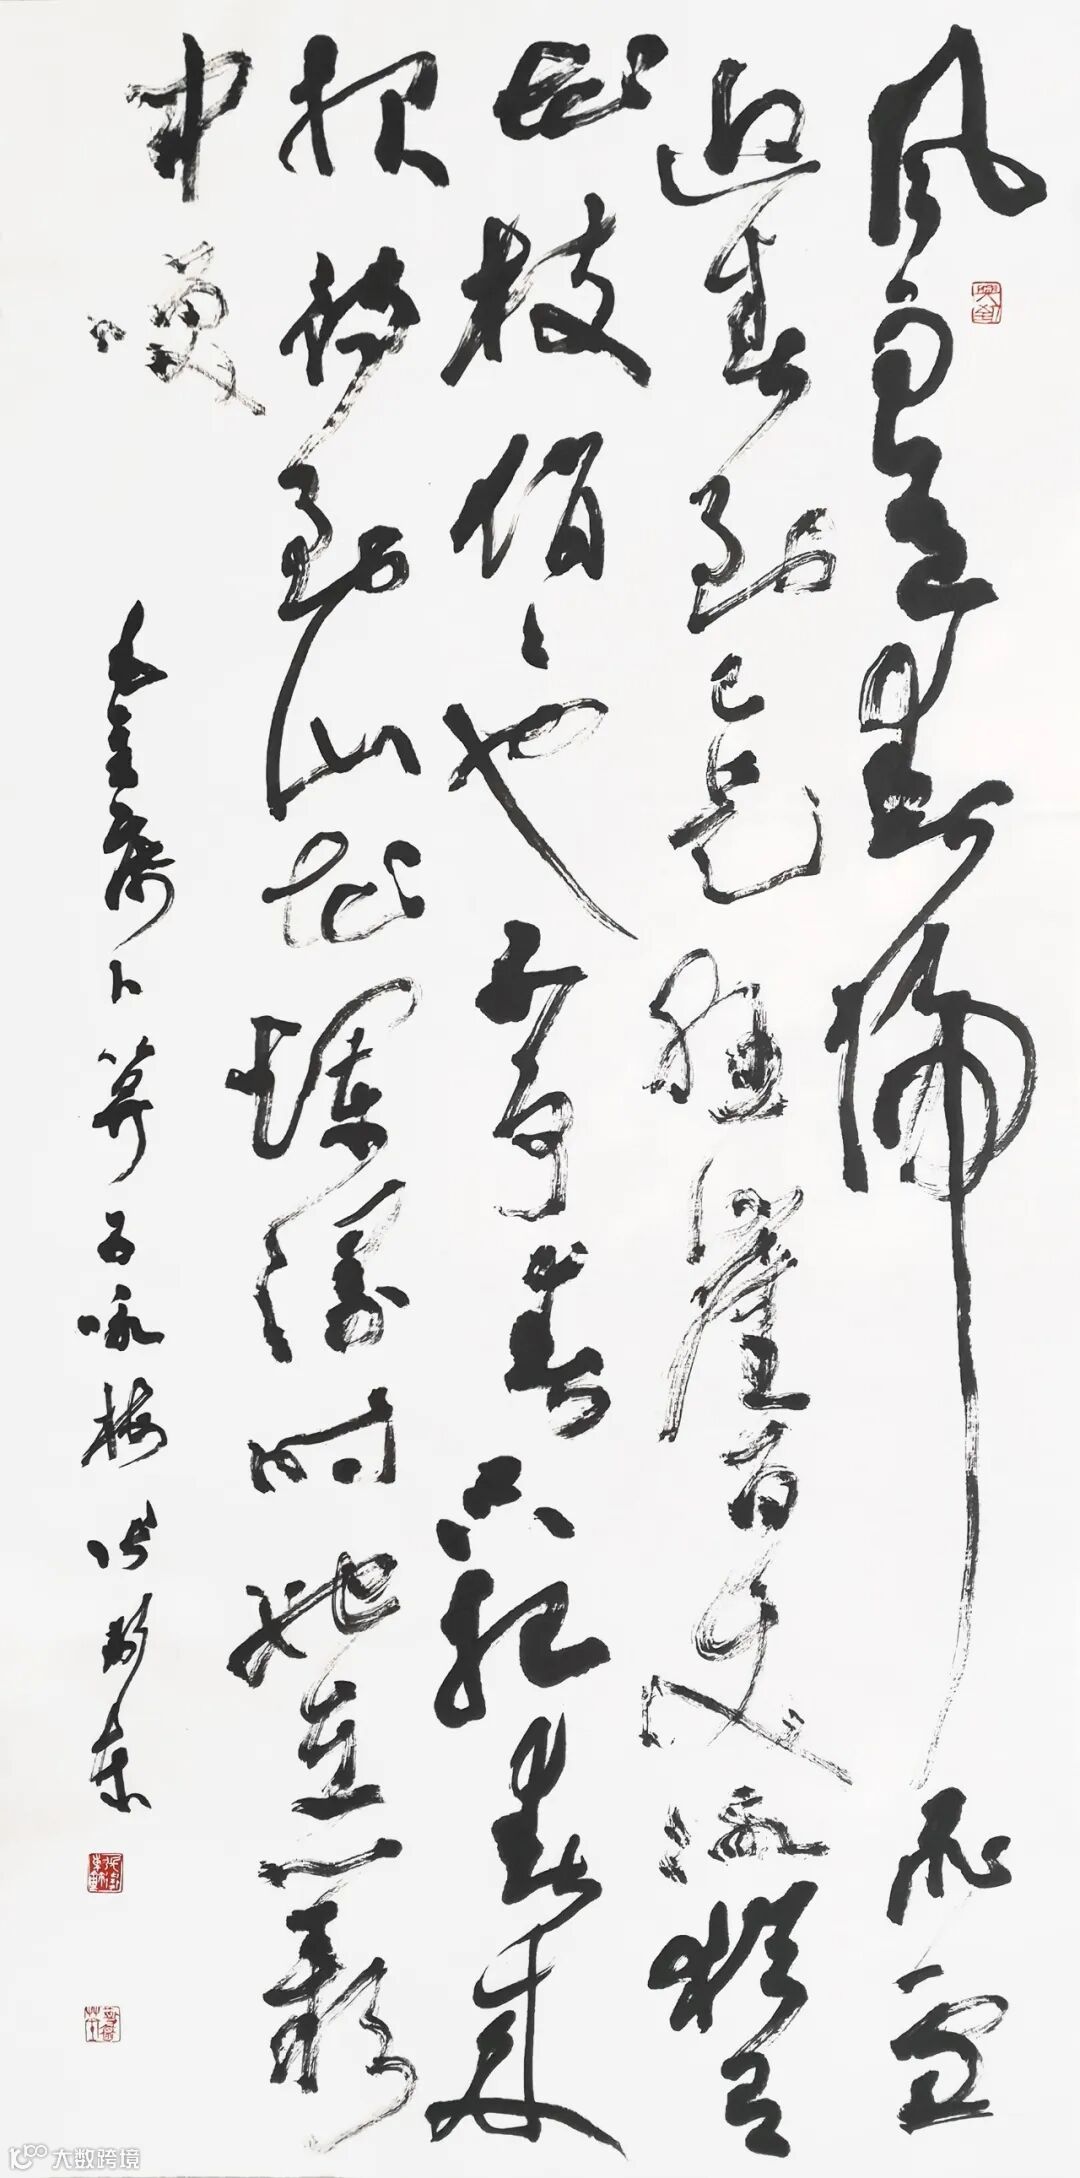 风雨送春归飞雪
迎春到已是悬崖百丈冰犹有
花枝俏〻也不争春只把春来
报待到山花烂漫时她在丛
中笑
毛主席卜算子咏梅 张东
大数跨境